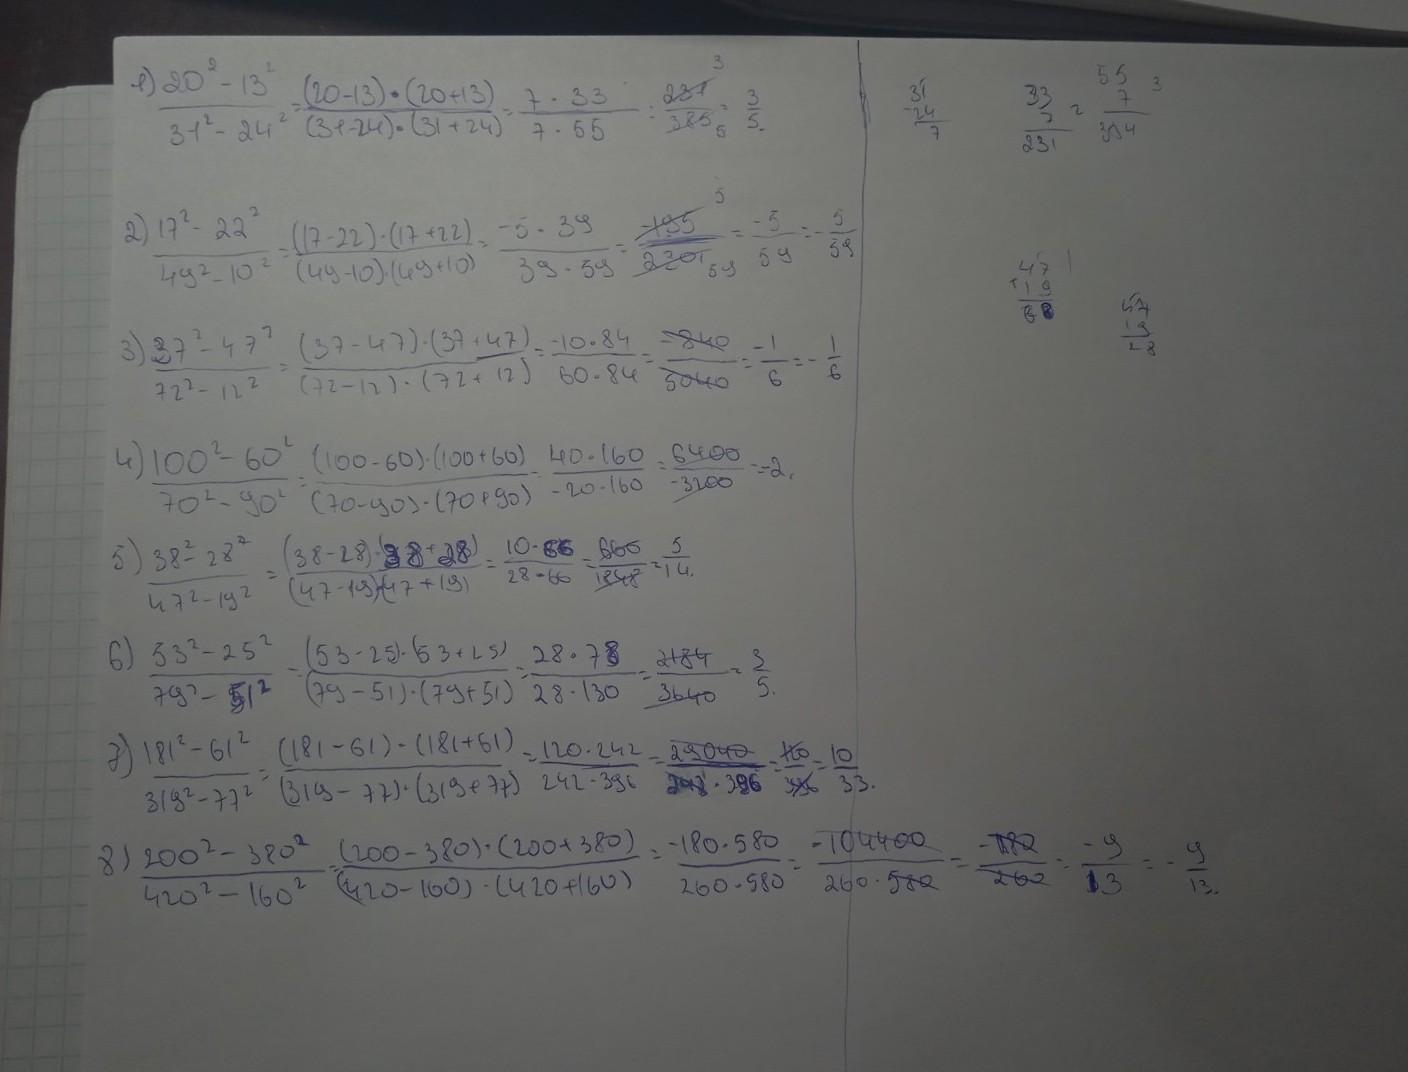 1) (20² - 13²)/(31² - 24²) = ((20-13)·(20+13))/((31-24)·(31+24)) = (7·33)/(7·55) = 231/385 = 3/5.
2) (17² - 22²)/(49² - 10²) = ((17-22)·(17+22))/((49-10)·(49+10)) = (-5·39)/(39·59) = -195/2301 = -5/59 = -5/59
3) (37² - 47²)/(72² - 12²) = ((37-47)·(37+47))/((72-12)·(72+12)) = (-10·84)/(60·84) = -840/5040 = -1/6 = -1/6
4) (100² - 60²)/(70² - 90²) = ((100-60)·(100+60))/((70-90)·(70+90)) = (40·160)/(-20·160) = 6400/-3200 = -2.
5) (38² - 28²)/(47² - 19²) = ((38-28)·(38+28))/((47-19)·(47+19)) = (10·66)/(28·66) = 660/1848 = 5/14.
6) (53² - 25²)/(79² - 51²) = ((53-25)·(53+25))/((79-51)·(79+51)) = (28·78)/(28·130) = 2184/3640 = 3/5.
7) (181² - 61²)/(319² - 77²) = ((181-61)·(181+61))/((319-77)·(319+77)) = (120·242)/(242·396) = 29040/(242·396) = 120/396 = 10/33.
8) (200² - 380²)/(420² - 160²) = ((200-380)·(200+380))/((420-160)·(420+160)) = (-180·580)/(260·580) = -104400/(260·580) = -180/260 = -9/13 = -9/13.
31
-24
7
33
7
231
2
55
7
3
47
+19